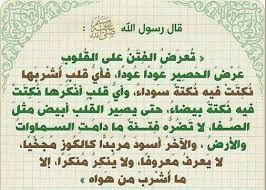 قال رسول الله ﷺ :
« تُعرَضُ الفِتَنُ على القُلوبِ
عَرْضَ الحصيرِ عوداً عودا، فأيُّ قلبٍ أُشرِبها
نُكتت فيه نُكتةٌ سوداءُ، وأيُّ قلبٍ أنكَرَها نُكتت
فيه نُكتةٌ بيضاءُ، حتى يصير القلب أبيض مثل
الصَّفا، لا تضرُّه فتنةٌ ما دامت السماوات
والأرضُ ، والآخر أسود مُربدّاً كالكوز مجخِّياً،
لا يعرفُ معروفاً، ولا ينكرُ منكراً، إلا
ما أُشربَ من هواه »